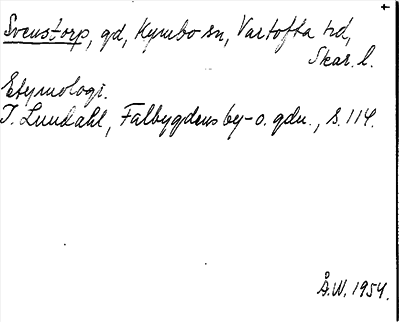 Svenstorp, gd, Kymbo sn, Vartofta hd,
Skar. l.
Etymologi.
I. Lundahl, Falbygdens by- o. gdn., s. 114.
Å.W. 1954.